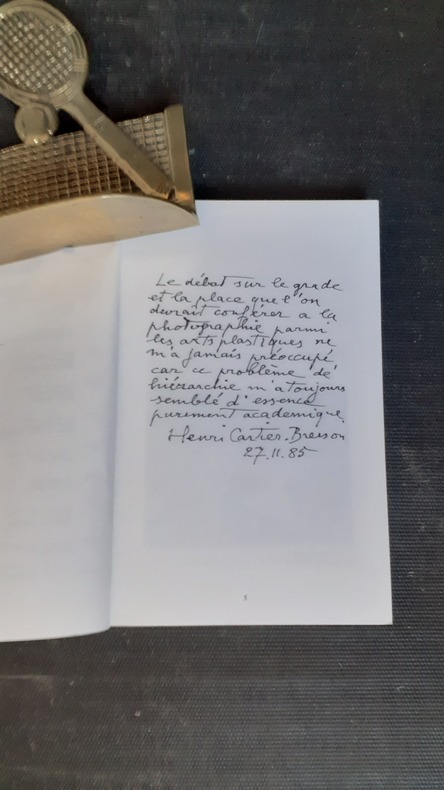 Le débat sur le grade
et la place que l'on
devrait conférer a la
photographie parmi
les arts plastiques ne
m'a jamais préoccupé
car ce problème de
hiérarchie m'a toujours
semblé d'essence
purement academique.
Henri Cartier-Bresson
27.11.85
5